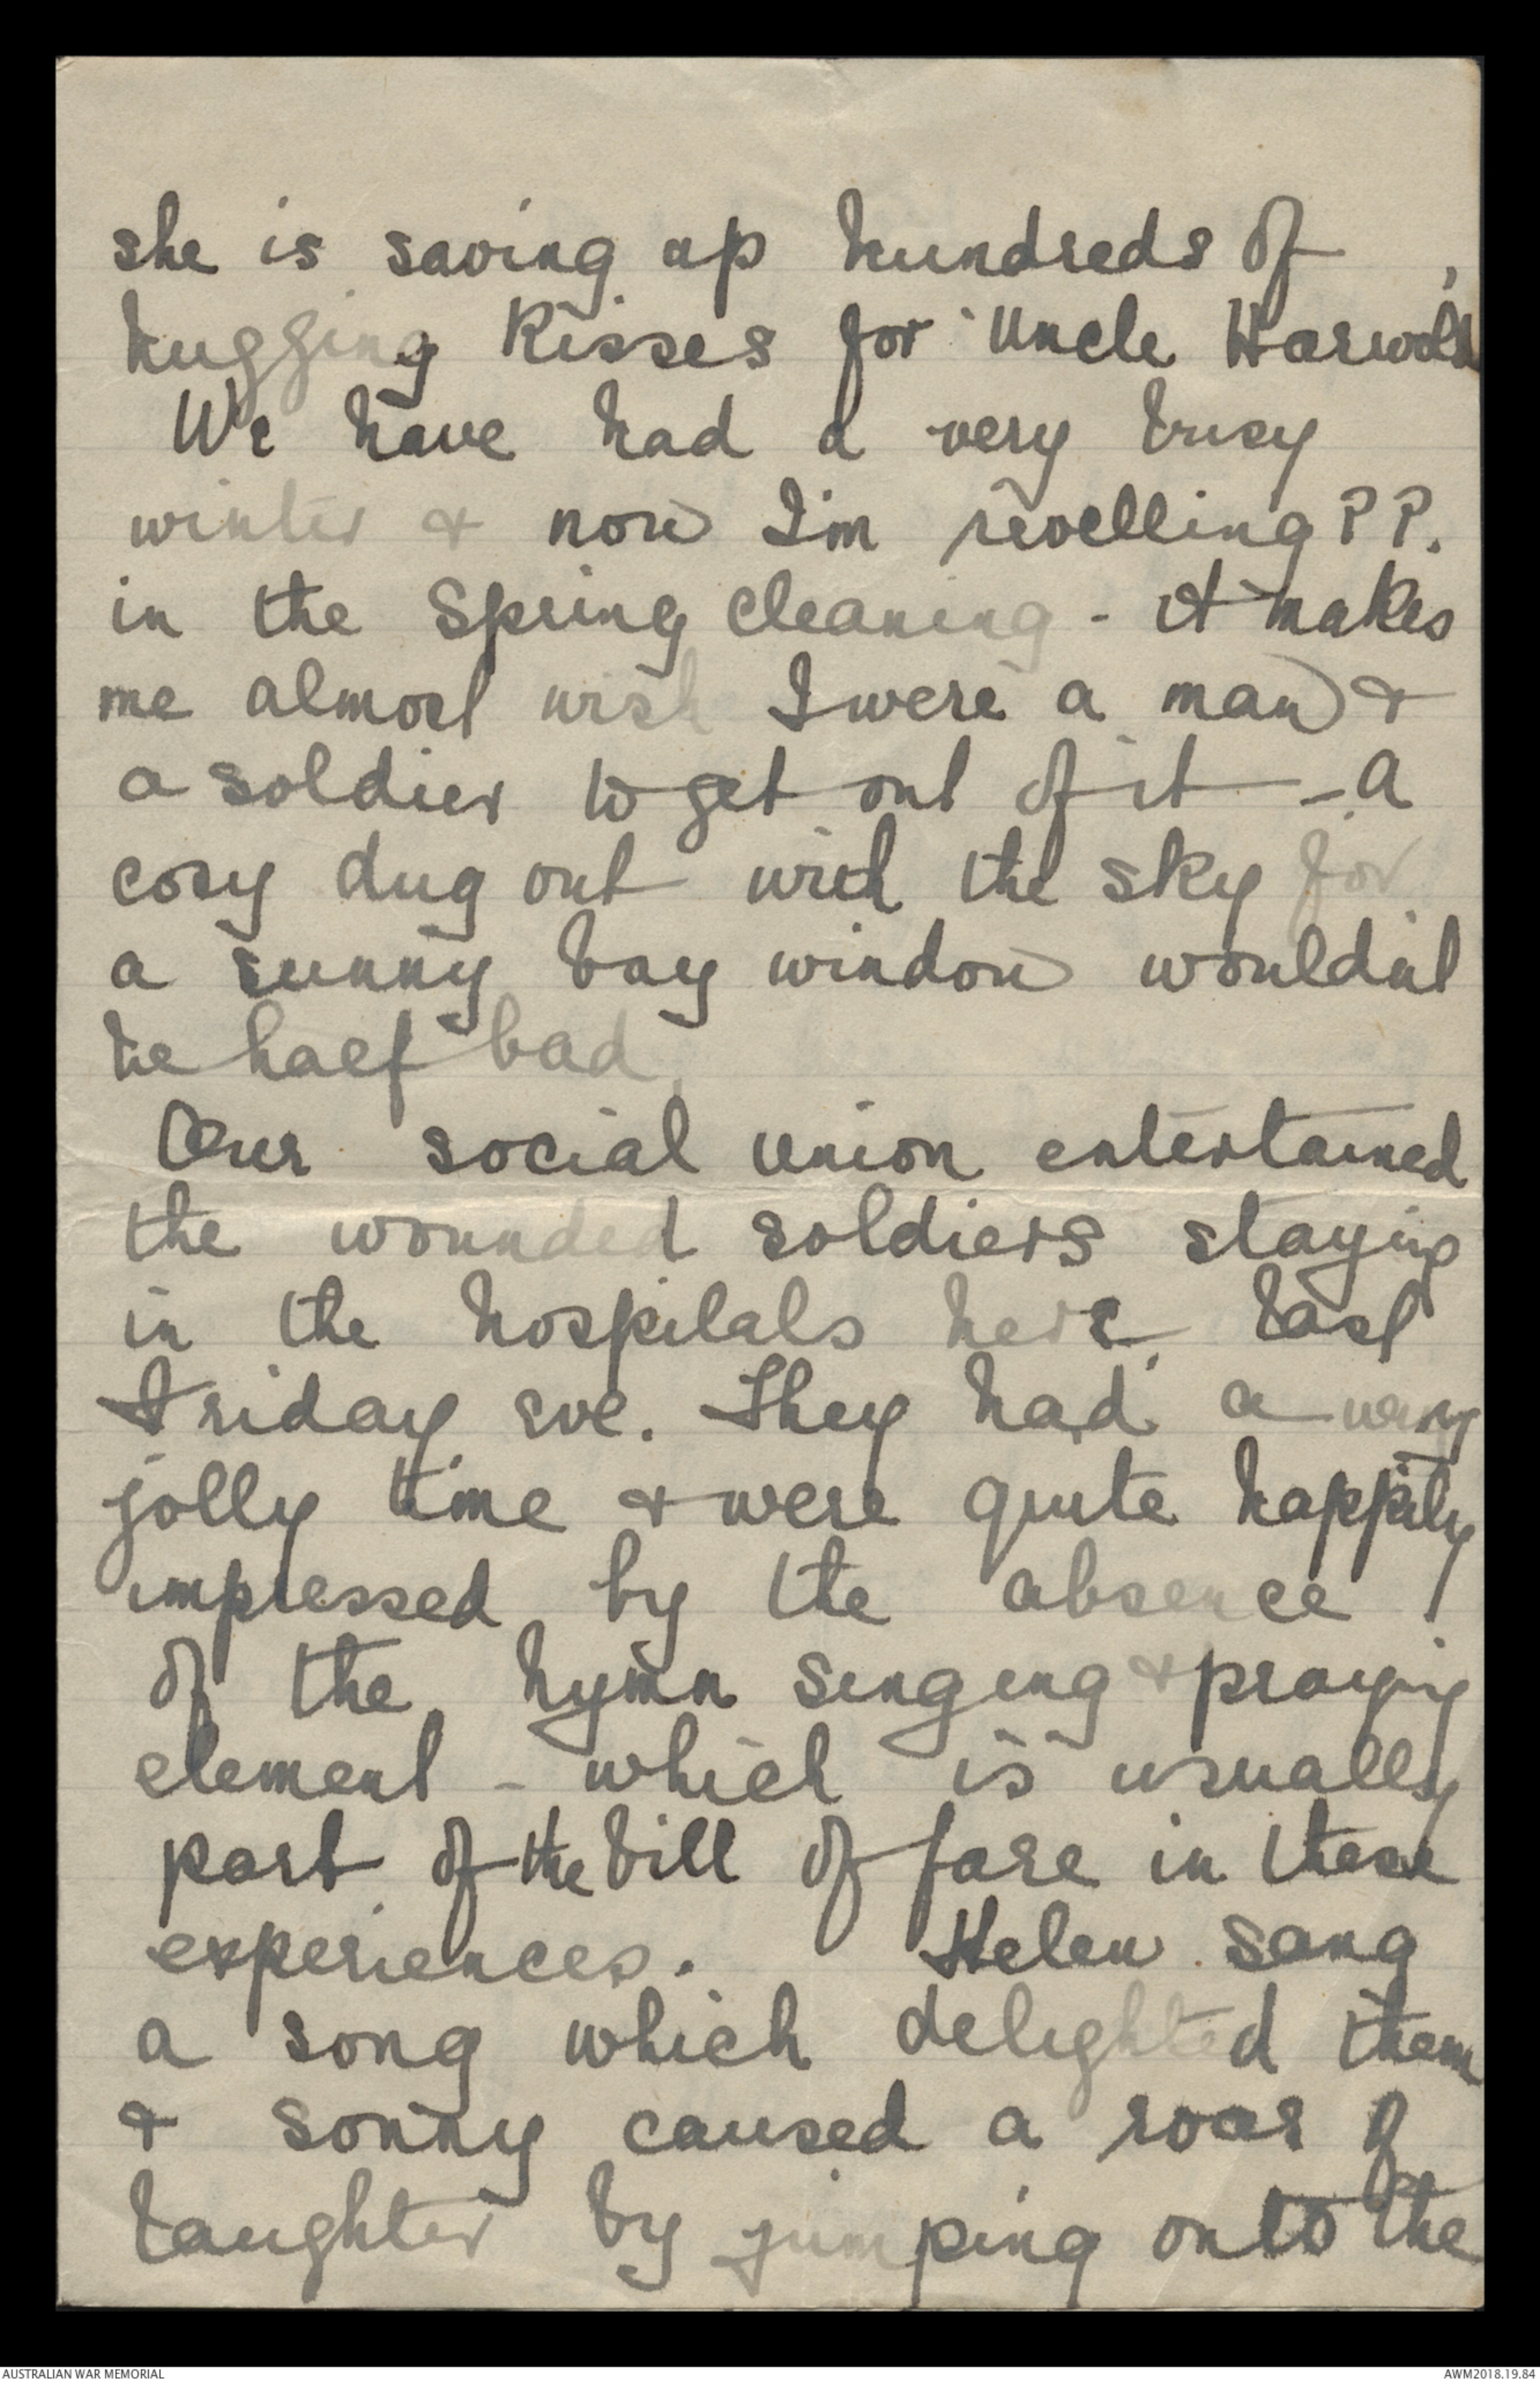 she is saving up hundreds of
hugging kisses for Uncle Harwold
We have had a very busy
winter & now I'm revelling ??.
in the Spring cleaning - it makes
me almost wish I were a man &
a soldier to get out of it - a
cosy dug out with the sky for
a sunny bay window wouldn't
be half bad.
Our social union entertained
the wounded soldiers staying
in the hospitals here, last
Friday eve. They had a very
jolly time & were quite happily
impressed by the absence
of the hymn singing & praying
element - which is usually
part of the bill of fare in these
experiences. Helen sang
a song which delighted them
& sonny caused a roar of
laughter by jumping onto the
AUSTRALIAN WAR MEMORIAL
AWM2018.19.84